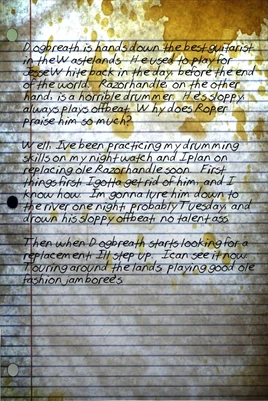 Dogbreath is hands down the best guitarist
in the Wastelands. He used to play for
Jesse White back in the day, before the end
of the world. Razorhandle, on the other
hand, is a horrible drummer. He's sloppy,
always plays offbeat. Why does Roper
praise him so much?
Well, I've been practicing my drumming
skills on my night watch and I plan on
replacing ole Razorhandle soon. First
things first: I gotta get rid of him, and I
know how. I'm gonna lure him down to
the river one night, probably Tuesday, and
drown his sloppy offbeat no talent ass.
Then when Dogbreath starts looking for a
replacement, I'll step up. I can see it now.
Touring around the lands, playing good ole
fashion jamborees.